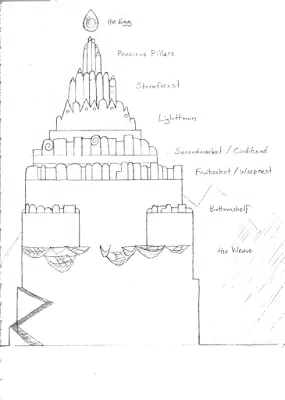 the Egg
Precious Pillars
Stoneforest
Lighttown
Secondmarket /
Fruitmarket / Waspnest
Bottomshelf
the Weave